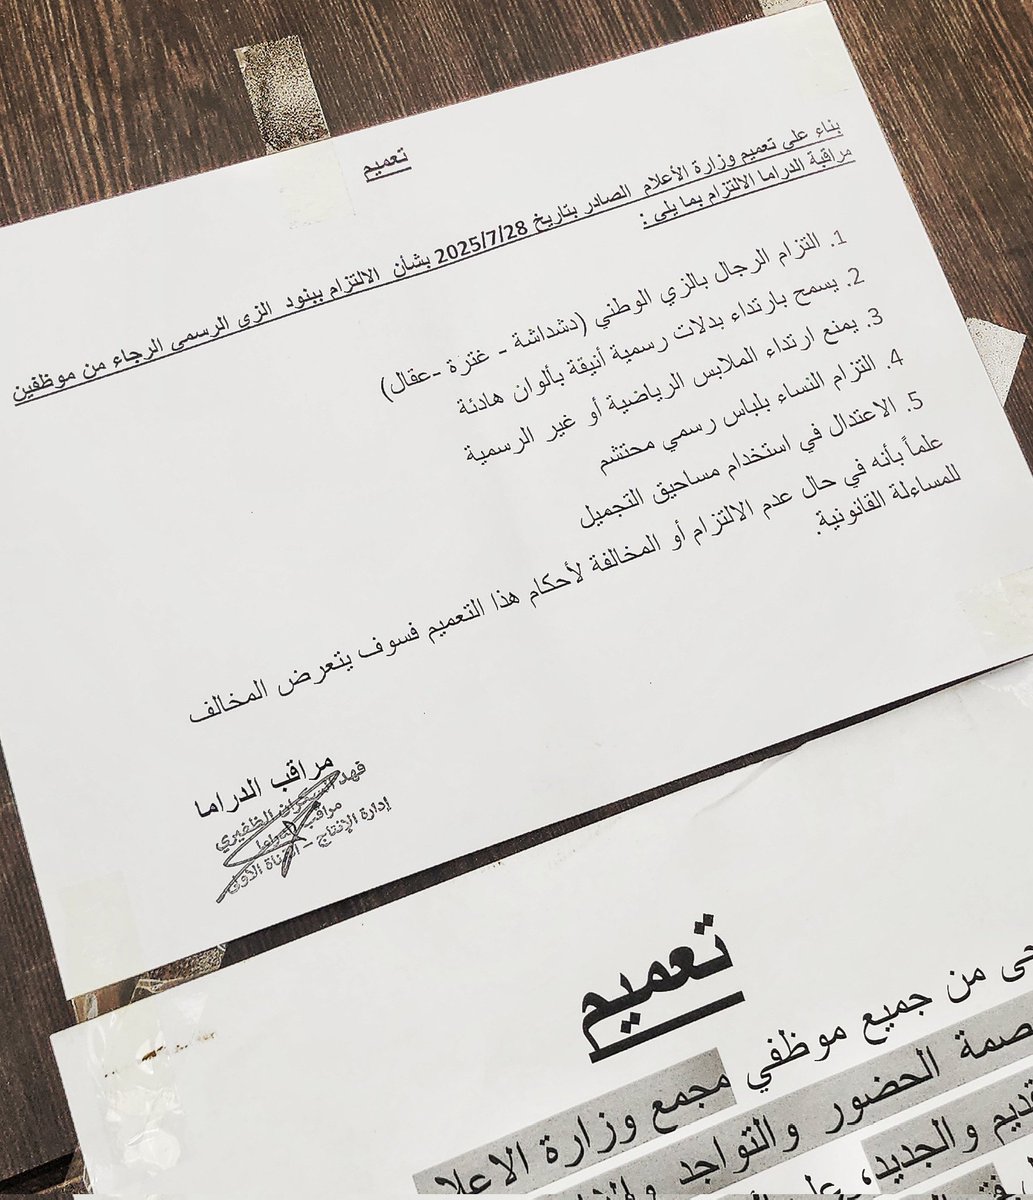 تعميم
بناء على تعميم وزارة الأعلام الصادر بتاريخ 2025/7/28 بشأن الالتزام ببنود الزي الرسمي الرجاء من موظفين
مراقبة الدراما الالتزام بما يلي :
1. التزام الرجال بالزي الوطني (دشداشة - غترة -عقال)
2. يسمح بارتداء بدلات رسمية أنيقة بألوان هادئة
3. يمنع ارتداء الملابس الرياضية أو غير الرسمية
4. التزام النساء بلباس رسمي محتشم
5. الاعتدال في استخدام مساحيق التجميل
علماً بأنه في حال عدم الالتزام أو المخالفة لأحكام هذا التعميم فسوف يتعرض المخالف
للمساءلة القانونية.
مراقب الدراما
فهد الظفيري
مراقب الدراما
إدارة الإنتاج - القناة الأولى
تعميم
من جميع موظفي مجمع وزارة الاعلا
الحضور والتواجد
والجديد،